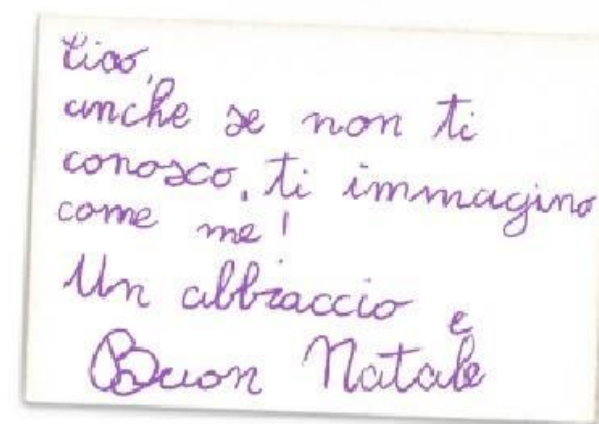 Ciao,
anche se non ti
conosco, ti immagino
come me!
Un abbraccio e
Buon Natale